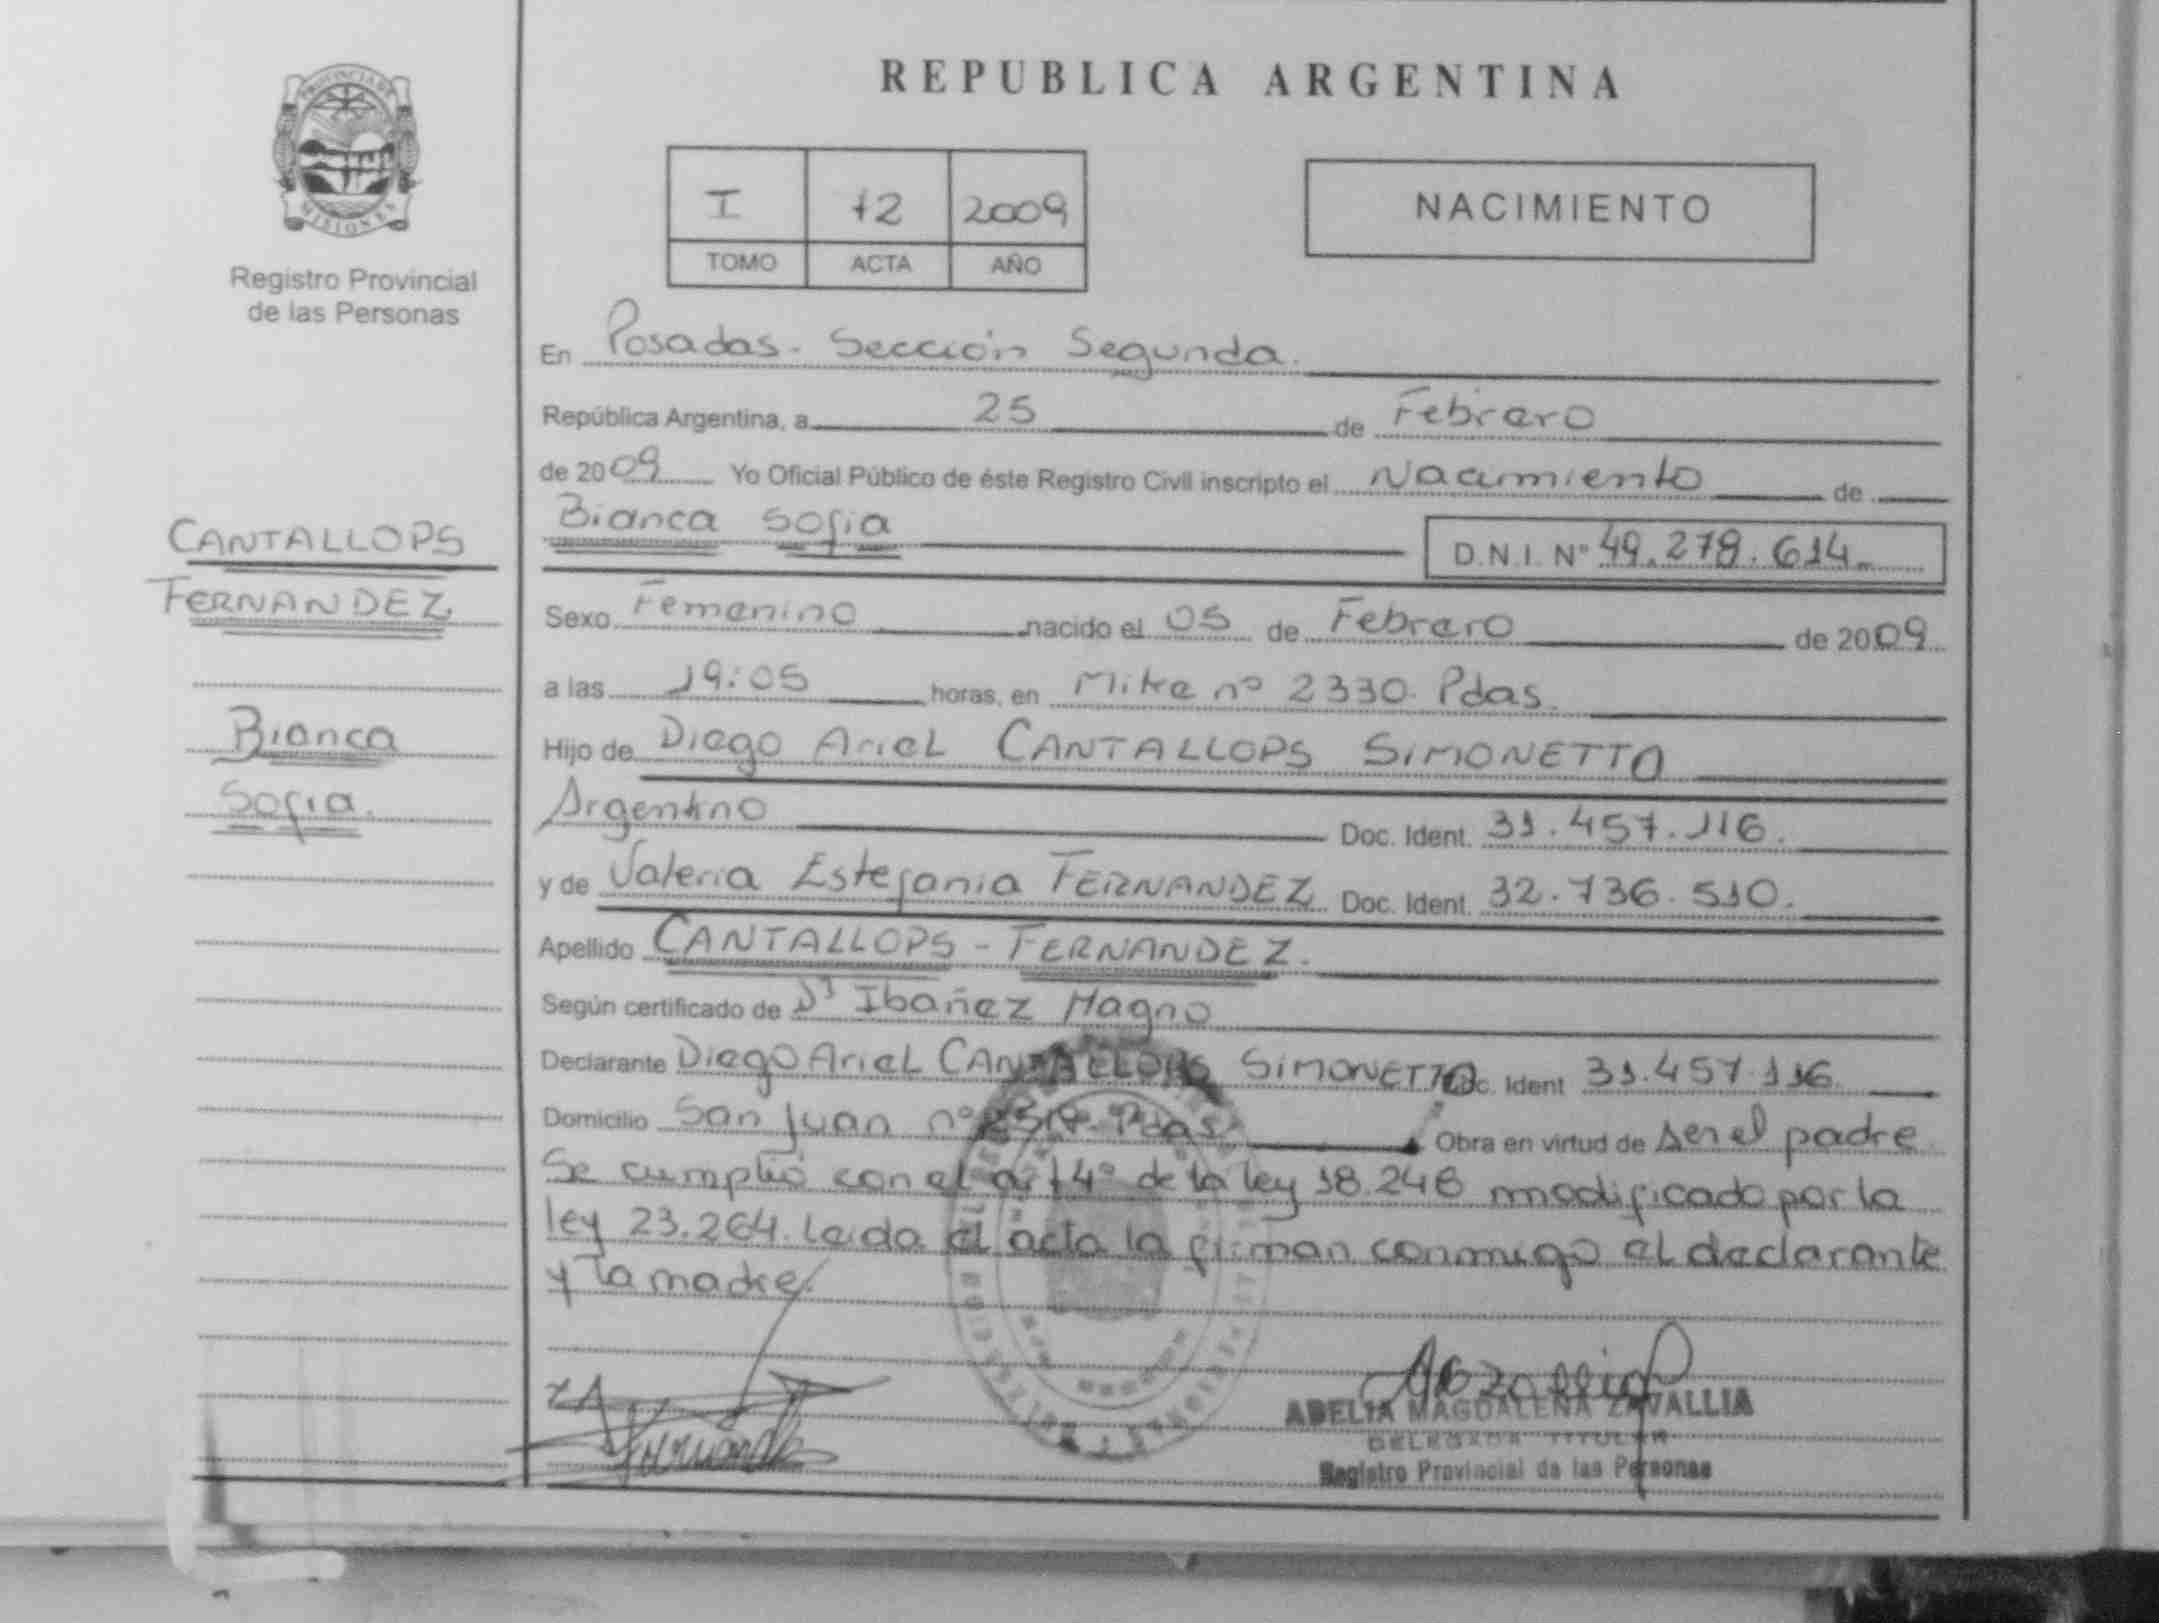 REPUBLICA ARGENTINA
PROVINCIA DE
MISIONES
Registro Provincial
de las Personas
I 72 2009
TOMO ACTA AÑO
NACIMIENTO
En Posadas - Sección Segunda.
República Argentina, a 25 de Febrero
de 2009 Yo Oficial Público de éste Registro Civil inscripto el Nacimiento de
CANTALLOPS
FERNANDEZ
Bianca
Sofia.
Bianca Sofia D.N.I. Nº 49.279.614
Sexo Femenino nacido el 05 de Febrero de 2009
a las 19:05 horas, en Mitre nº 2330. Pdas.
Hijo de Diego Ariel CANTALLOPS SIMONETTO
Argentino Doc. Ident. 31.457.116.
y de Valeria Estefania FERNANDEZ Doc. Ident. 32.736.510.
Apellido CANTALLOPS - FERNANDEZ.
Según certificado de Dr Ibañez Magno
Declarante Diego Ariel CANTALLOPS SIMONETTO Doc. Ident 31.457.116.
Domicilio San Juan nº Pdas. Obra en virtud de ser el padre
Se cumplió con el art 4º de la ley 18.248 modificado por la
ley 23.264. Leida el acta la firman conmigo el declarante
y la madre.
ABELIA MAGDALENA ZAVALLIA
DELEGADA TITULAR
Registro Provincial de las Personas